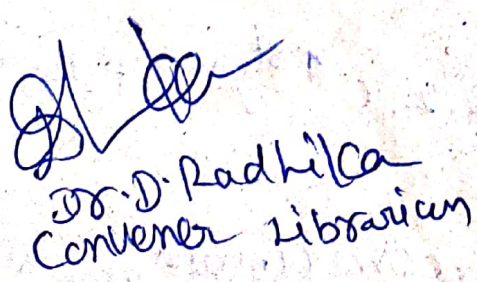 Dr. D. Radhika
Convener Librarian